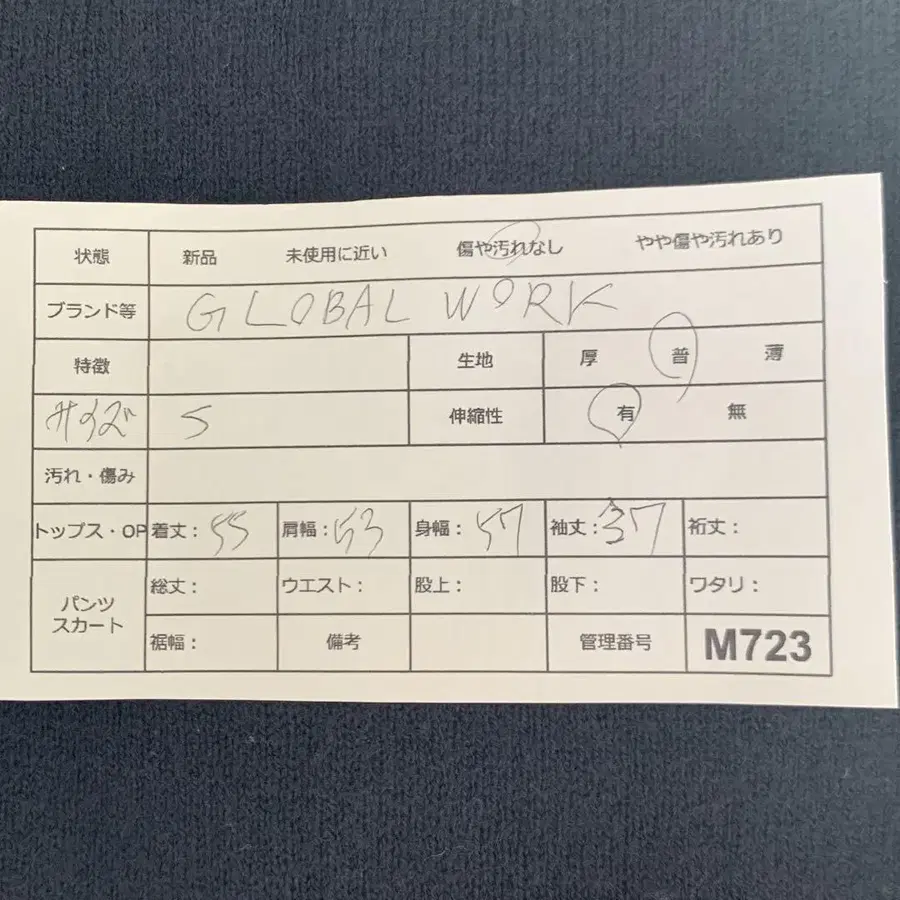 状態 新品 未使用に近い 傷や汚れなし やや傷や汚れあり
ブランド等 GLOBAL WORK
特徴 生地 厚 普 薄
サイズ S 伸縮性 有 無
汚れ・傷み
トップス・OP 着丈：55 肩幅：53 身幅：57 袖丈：37 裄丈：
パンツ
スカート
総丈： ウエスト： 股上： 股下： ワタリ：
裾幅： 備考 管理番号 M723